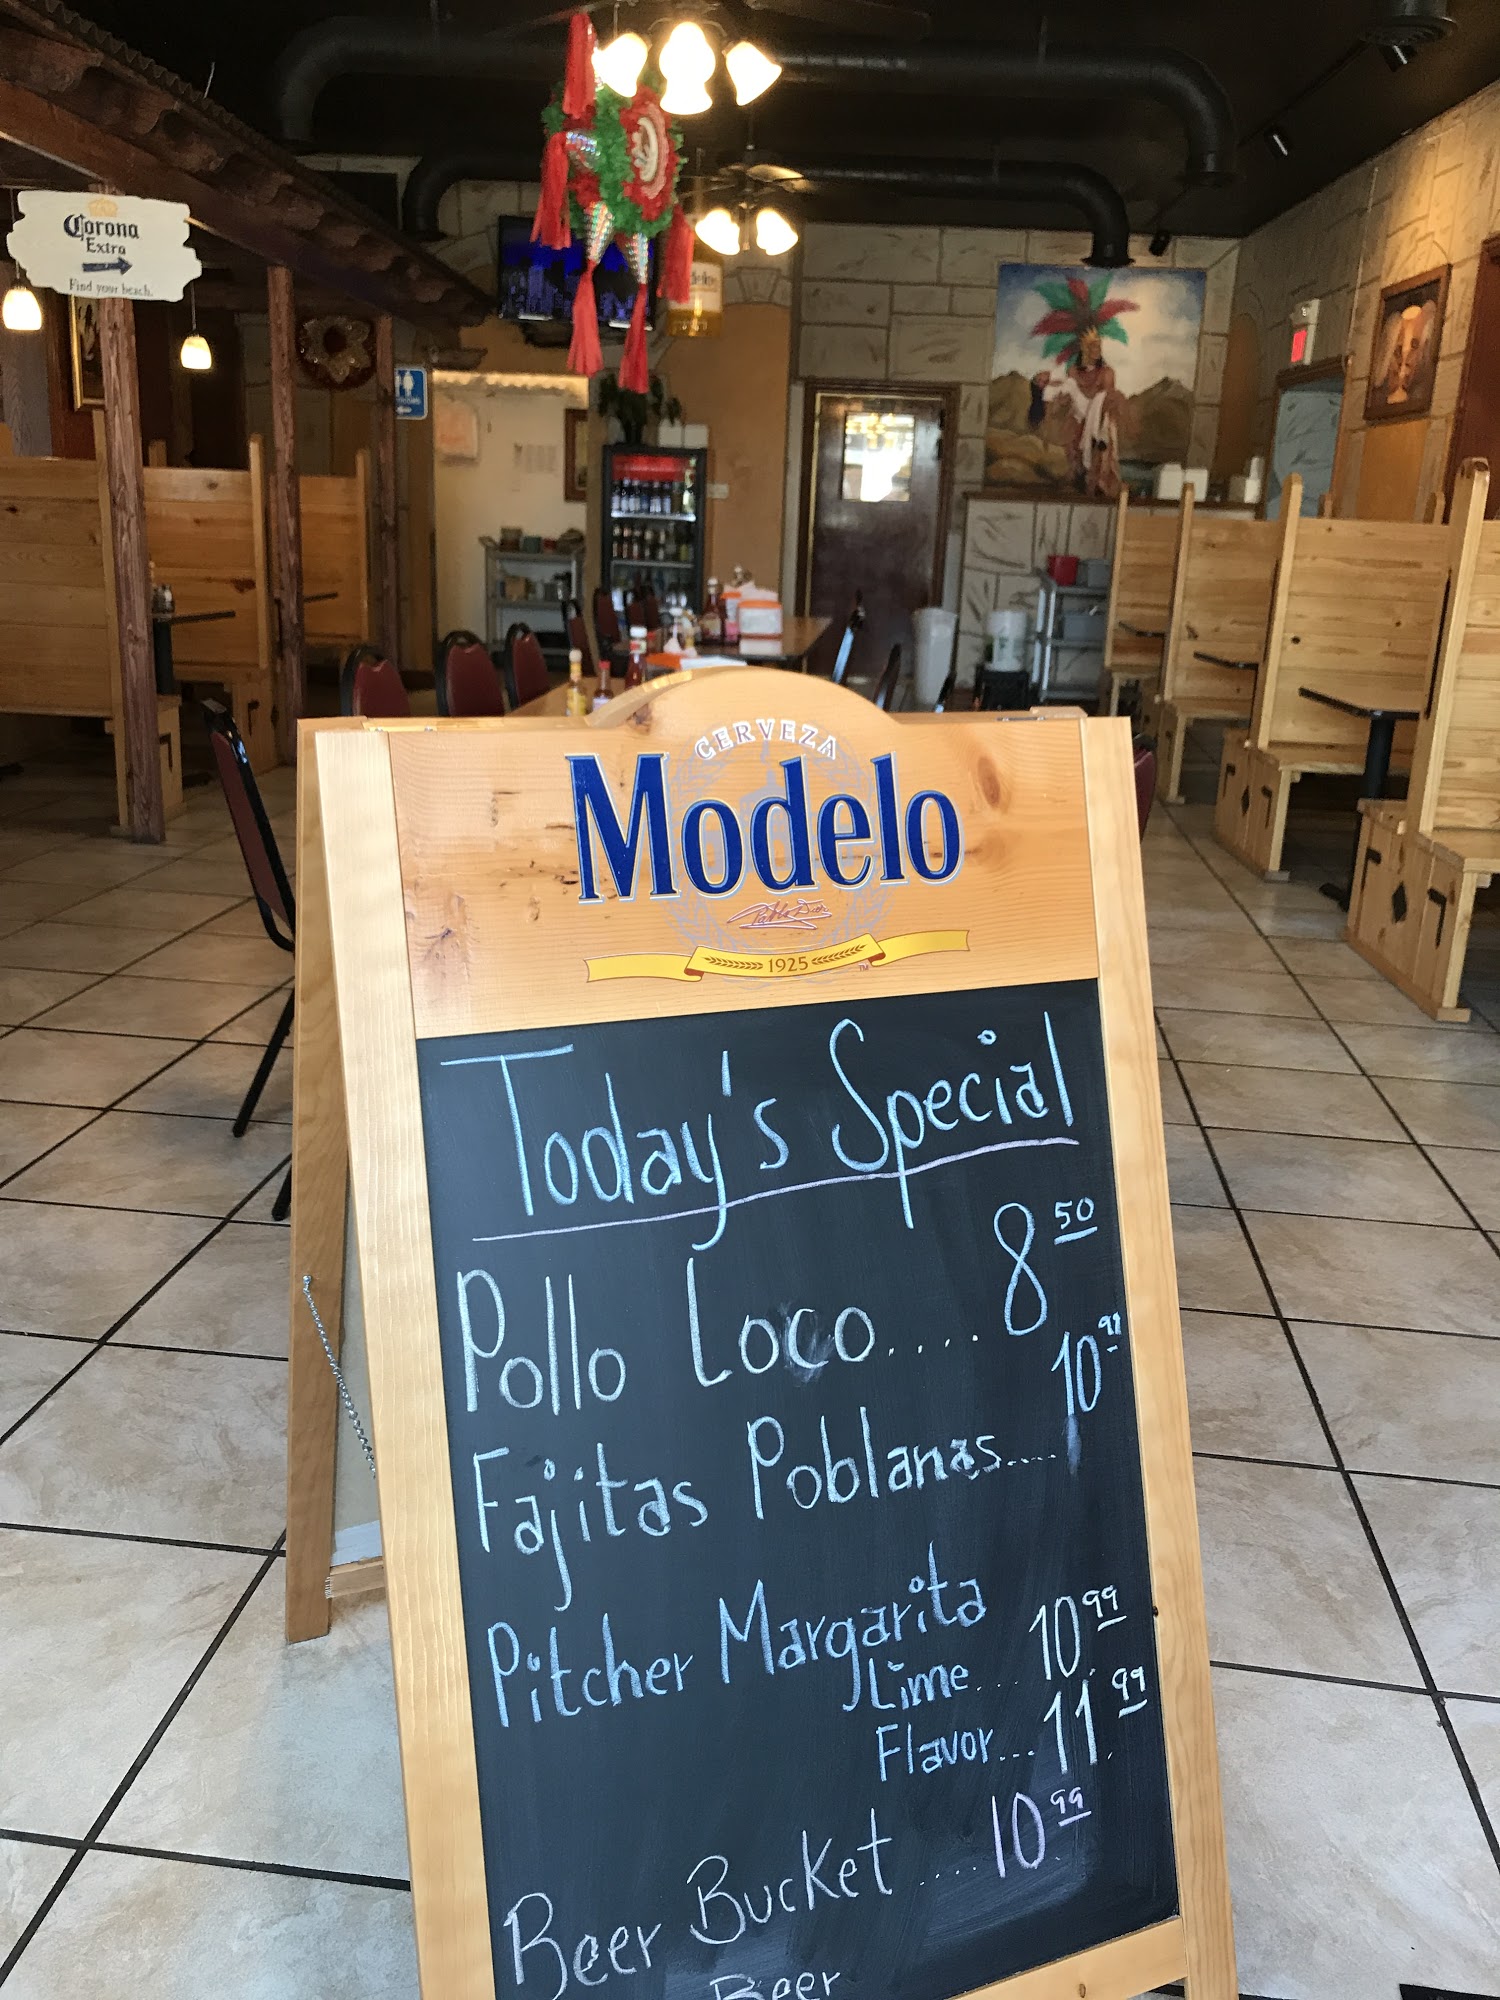 Corona
Extra
Find your beach.
CERVEZA
Modelo
1925
TM
Today's Special
Pollo Loco.... 8 50
Fajitas Poblanas..... 10 99
Pitcher Margarita
Lime... 10 99
Flavor... 11. 99
Beer Bucket .... 10. 99
Beer